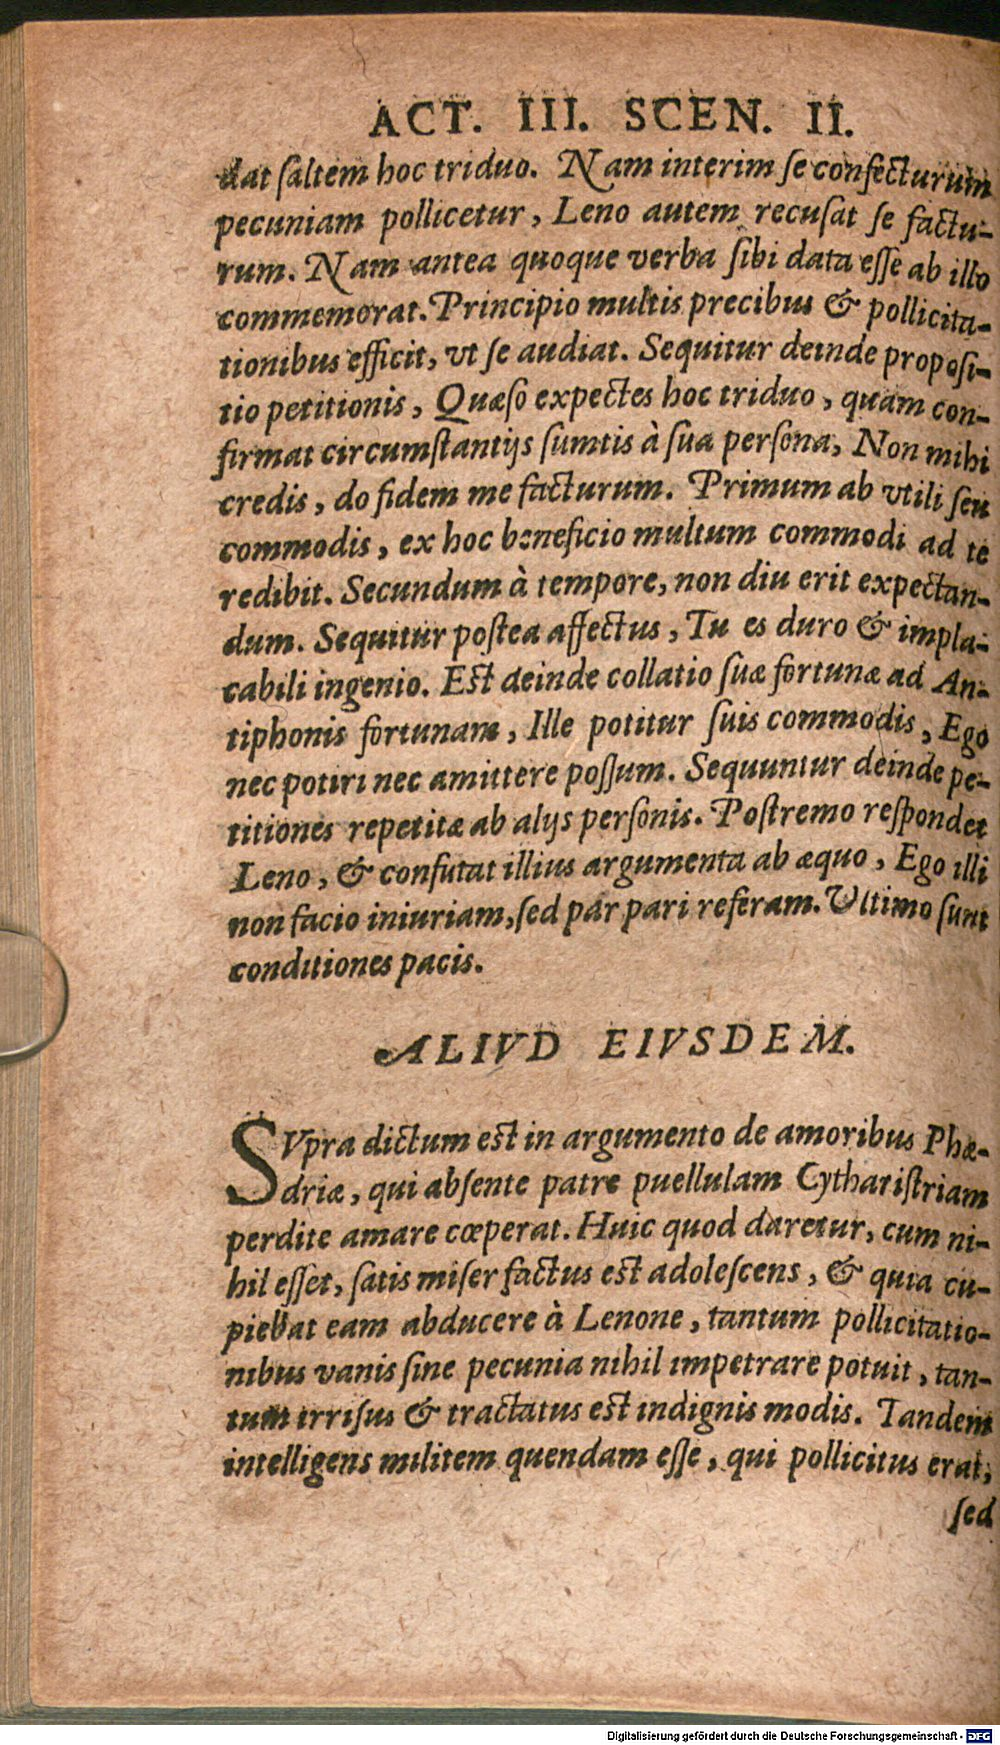 ACT. III. SCEN. II.
dat ſaltem hoc triduo. Nam interim ſe confecturum
pecuniam pollicetur, Leno autem recuſat ſe factu-
rum. Nam antea quoque verba ſibi data eſſe ab illo
commemorat. Principio multis precibus & pollicita-
tionibus efficit, vt ſe audiat. Sequitur deinde propoſi-
tio petitionis, Quæſo expectes hoc triduo, quam con-
firmat circumſtantijs ſumtis à ſua perſona, Non mihi
credis, do fidem me facturum. Primum ab vtili ſeu
commodis, ex hoc beneficio multum commodi ad te
redibit. Secundum à tempore, non diu erit expectan-
dum. Sequitur poſtea affectus, Tu es duro & impla-
cabili ingenio. Est deinde collatio ſuæ fortunæ ad An-
tiphonis fortunam, Ille potitur ſuis commodis, Ego
nec potiri nec amittere poſſum. Sequuntur deinde pe-
titiones repetitæ ab alijs perſonis. Poſtremo reſpondet
Leno, & confutat illius argumenta ab æquo, Ego illi
non facio iniuriam, ſed par pari referam. Vltimo ſunt
conditiones pacis.
ALIVD EIVSDEM.
SVpra dictum est in argumento de amoribus Phæ-
driæ, qui abſente patre puellulam Cythariſtriam
perdite amare cœperat. Huic quod daretur, cum ni-
hil eſſet, ſatis miſer factus est adoleſcens, & quia cu-
piebat eam abducere à Lenone, tantum pollicitatio-
nibus vanis ſine pecunia nihil impetrare potuit, tan-
tum irriſus & tractatus est indignis modis. Tandem
intelligens militem quendam eſſe, qui pollicitus erat,
ſed
Digitalisierung gefördert durch die Deutsche Forschungsgemeinschaft - DFG